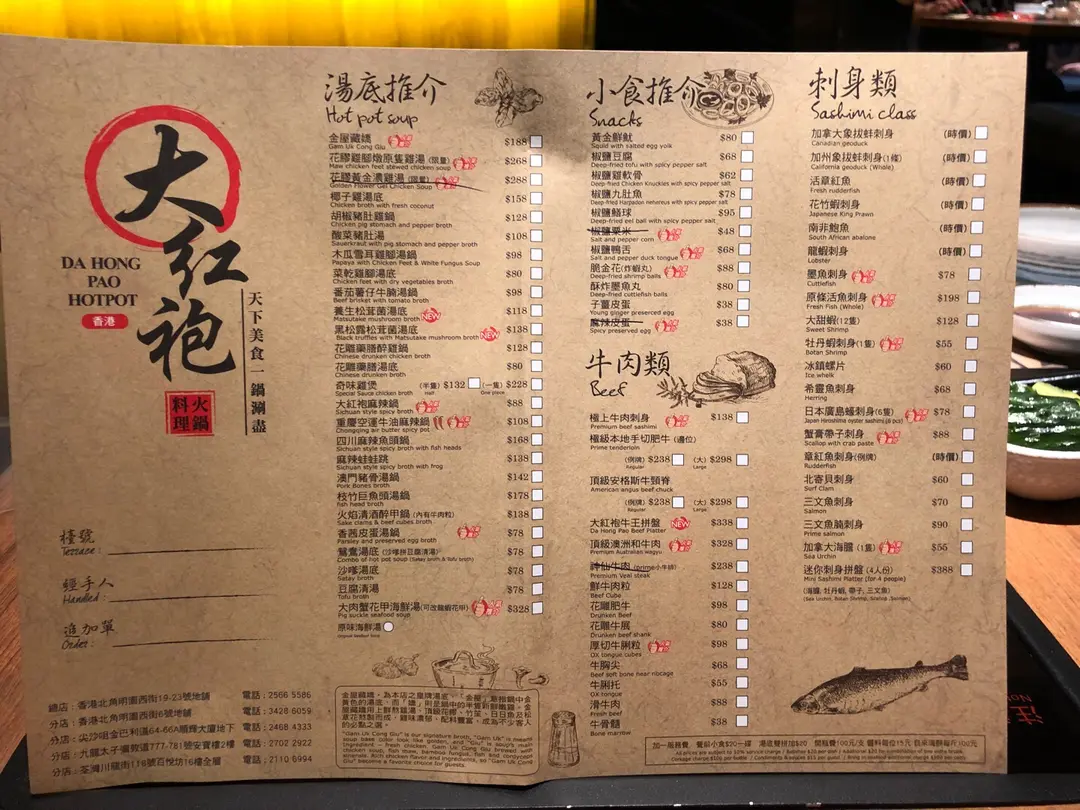 大紅袍
DA HONG
PAO
HOTPOT
香港
天下美食一鍋涮盡
火鍋
料理
檯號
Terrace :
經手人
Handled :
追加單
Order :
總店：香港北角明園西街19-23號地舖 電話：2566 5586
分店：香港北角明園西街6號地舖 電話：3428 6059
分店：尖沙咀金巴利道64-66A順輝大廈地下 電話：2468 4333
分店：九龍太子彌敦道777-781號安寶樓2樓 電話：2702 2922
分店：荃灣川龍街118號百悅坊16樓全層 電話：2110 6994
湯底推介
Hot pot soup
金屋藏嬌 $188
Gam Uk Cong Giu
花膠雞腳燉原隻雞湯(限量) $268
Maw chicken feet stewed chicken soup
花膠黃金濃雞湯(限量) $288
Golden Flower Gel Chicken Soup
椰子雞湯底 $158
Chicken broth with fresh coconut
胡椒豬肚雞鍋 $128
Chicken pig stomach and pepper broth
酸菜豬肚湯 $108
Sauerkraut with pig stomach and pepper broth
木瓜雪耳雞腳湯鍋 $98
Papaya with Chicken Feet & White Fungus Soup
菜乾雞腳湯底 $80
Chicken feet with dry vegetables broth
番茄薯仔牛腩湯鍋 $98
Beef brisket with tomato broth
養生松茸菌湯底 NEW $118
Matsutake mushroom broth
黑松露松茸菌湯底 NEW $138
Black truffles with Matsutake mushroom broth
花雕藥膳醉雞鍋 $128
Chinese drunken chicken broth
花雕藥膳湯底 $80
Chinese drunken broth
奇味雞煲 (半隻) $132 (一隻) $228
Special Sauce chicken broth Half One piece
大紅袍麻辣鍋 $88
Sichuan style spicy broth
重慶空運牛油麻辣鍋 $108
Chongqing air butter spicy pot
四川麻辣魚頭鍋 $168
Sichuan style spicy broth with fish heads
麻辣蛙蛙跳 $138
Sichuan style spicy broth with frog
澳門豬骨湯鍋 $142
Pork Bones broth
枝竹巨魚頭湯鍋 $178
fish head broth
火焰清酒醉甲鍋(內有牛肉粒) $138
Sake clams & beef cubes broth
香茜皮蛋湯鍋 $78
Parsley and preserved egg broth
鴛鴦湯底(沙嗲拼豆腐清湯) $78
Combo of hot pot soup (Satay broth & Tofu broth)
沙嗲湯底 $78
Satay broth
豆腐清湯 $78
Tofu broth
大肉蟹花甲海鮮湯(可改龍蝦花甲) $328
Pig suckle seafood soup
原味海鮮湯
Original Seafood Soup
金屋藏嬌，為本店之皇牌湯底，「金屋」意指鍋中金
"Gam Uk Cong Giu" is our signature broth, "Gam Uk" is means
soup base color look like golden, and "Giu" is soup's main
ingredient - fresh chicken. Gam Uk Cong Giu brewed with
chicken soup, fish maw, bamboo fungus, tofu and cordyceps
sinensis. Rich chicken flavor and ingredients, so "Gam Uk Cong
Giu" become a favorite choice for guests.
小食推介
Snacks
黃金鮮魷 $80
Squid with salted egg yolk
椒鹽豆腐 $68
Deep-fried tofu with spicy pepper salt
椒鹽雞軟骨 $62
Deep-fried Chicken Knuckles with spicy pepper salt
椒鹽九肚魚 $78
Deep-fried Harpadon nehereus with spicy pepper salt
椒鹽鱔球 $95
Deep-fried eel ball with spicy pepper salt
椒鹽粟米 $48
Salt and pepper corn
椒鹽鴨舌 $68
Salt and pepper duck tongue
脆金花(炸蝦丸) $88
Deep-fried shrimp balls
酥炸墨魚丸 $80
Deep-fried cuttlefish balls
子薑皮蛋 $38
Young ginger preserced egg
麻辣皮蛋 $38
Spicy preserved egg
牛肉類
Beef
極上牛肉刺身 $138
Premium beef sashimi
極級本地手切肥牛(邊位)
Prime tenderloin
(例牌) $238 (大) $298
Regular Large
頂級安格斯牛頸脊
American angus beef chuck
(例牌) $238 (大) $298
Regular Large
大紅袍牛王拼盤 NEW $338
Da Hong Pao Beef Platter
頂級澳洲和牛肉 $328
Premium Australian wagyu
神仙牛肉(prime小牛排) $238
Premium Veal steak
鮮牛肉粒 $128
Beef Cube
花雕肥牛 $98
Drunken Beef
花雕牛展 $80
Drunken beef shank
厚切牛脷粒 $98
OX tongue cubes
牛胸尖 $68
Beef soft bone near nocage
牛脷托 $55
OX tongue
滑牛肉 $88
Fresh beef
牛骨髓 $38
Bone marrow
刺身類
Sashimi class
加拿大象拔蚌刺身 (時價)
Canadian geoduck
加州象拔蚌刺身(1條) (時價)
California geoduck (Whole)
活章紅魚 (時價)
Fresh rudderfish
花竹蝦刺身 (時價)
Japanese King Prawn
南非鮑魚 (時價)
South African abalone
龍蝦刺身 (時價)
Lobster
墨魚刺身 $78
Cuttlefish
原條活魚刺身 $198
Fresh Fish (Whole)
大甜蝦(12隻) $128
Sweet Shrimp
牡丹蝦刺身(1隻) $55
Botan Shrimp
冰鎮螺片 $60
Ice whelk
希靈魚刺身 $68
Herring
日本廣島蠔刺身(6隻) $78
Japan Hiroshima oyster sashimi (6 pcs)
蟹膏帶子刺身 $88
Scallop with crab paste
章紅魚刺身(例牌) (時價)
Rudderfish
北寄貝刺身 $60
Surf Clam
三文魚刺身 $70
Salmon
三文魚腩刺身 $90
Prime salmon
加拿大海膽(1隻) $55
Sea Urchin
迷你刺身拼盤(4人份) $388
Mini Sashimi Platter (for 4 people)
(海膽, 牡丹蝦, 帶子, 三文魚)
(Sea Urchin, Botan Shrimp, Scallop, Salmon)
加一服務費 餐前小食$20一碟 湯底雙拼加$20 開瓶費100元/支 醬料每位15元 自來海鮮每斤100元